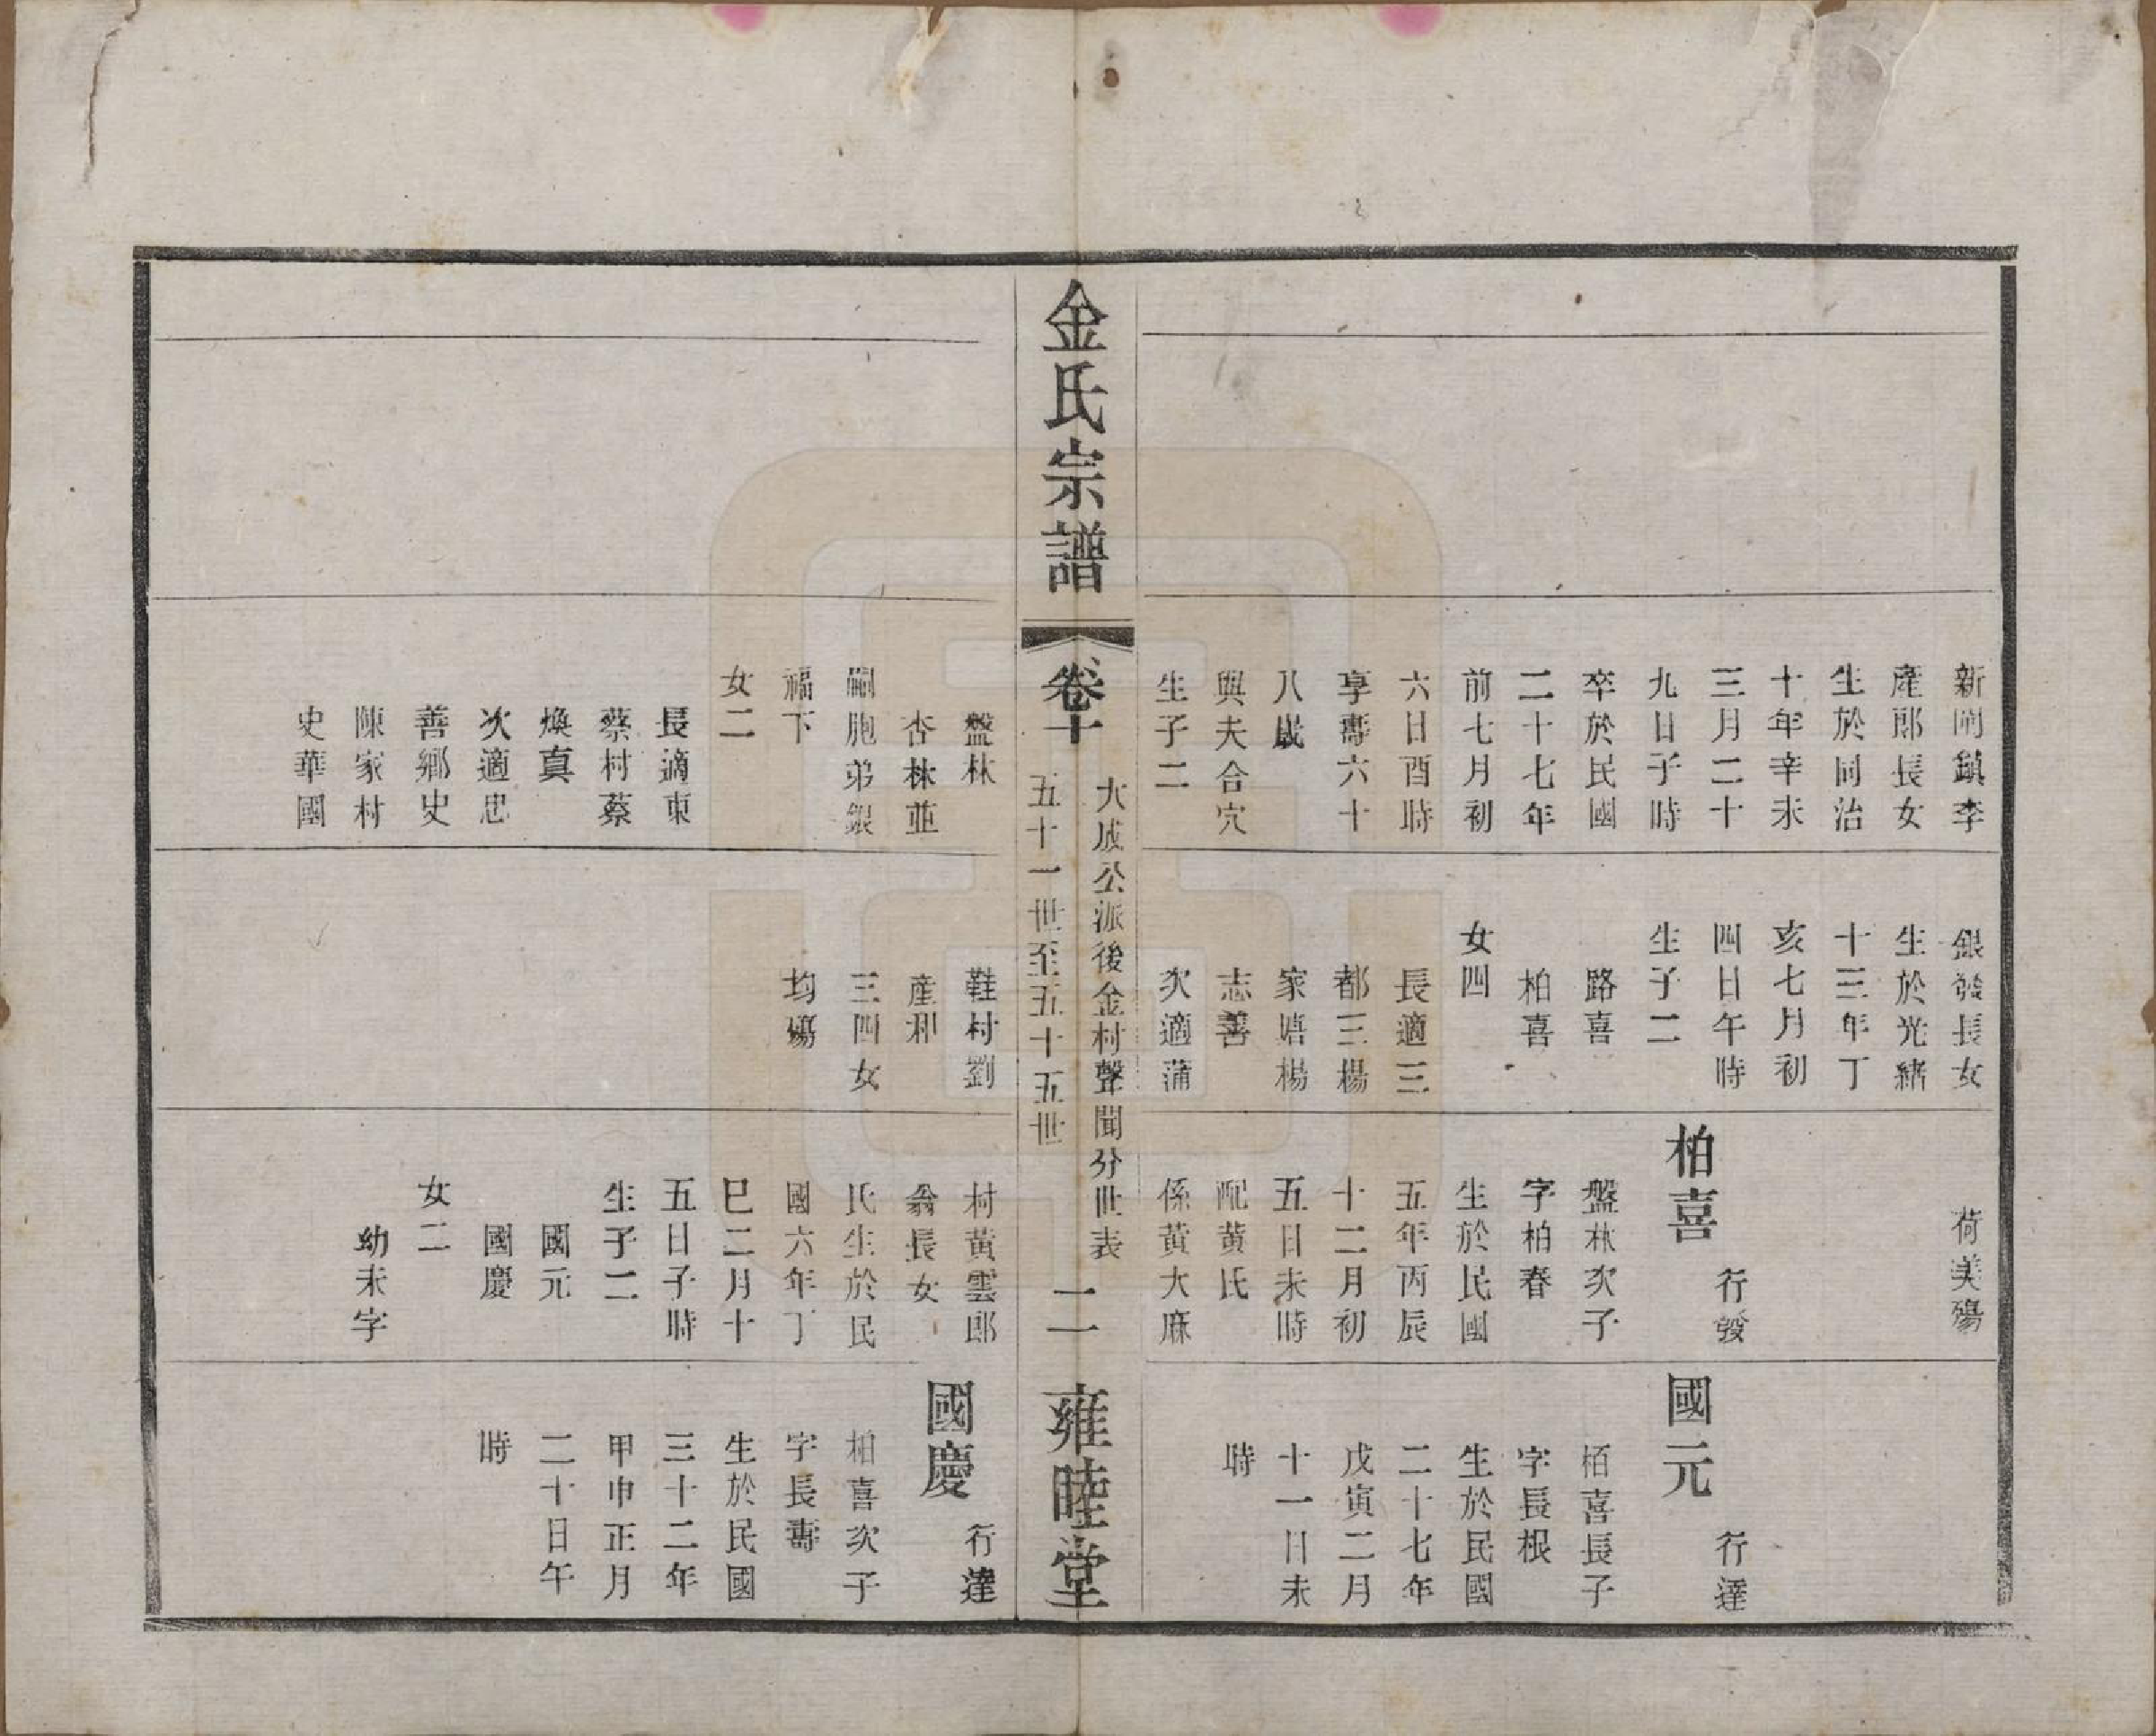 新閘鎮李
產郎長女
生於同治
十年辛未
三月二十
九日子時
卒於民國
二十七年
前七月初
六日酉時
享壽六十
八歲
與夫合穴
生子二
銀發長女
生於光緒
十三年丁
亥七月初
四日午時
生子二
路喜
柏喜
女四
長適三
都三楊
家塘楊
志善
次適蒲
荷美殤
柏喜
行發
盤林次子
字柏春
生於民國
五年丙辰
十二月初
五日未時
配黃氏
係黃大麻
國元
行達
栢喜長子
字長根
生於民國
二十七年
戊寅二月
十一日未
時
金氏宗譜
卷十
大成公派後金村聲聞分世表
五十一世至五十五世
二
雍睦堂
盤林
杏林並
嗣胞弟銀
福下
女二
長適東
蔡村蔡
煥真
次適忠
善鄉史
陳家村
史華國
鞋村劉
產和
三四女
均殤
村黃雲郎
翁長女
氏生於民
國六年丁
巳二月十
五日子時
生子二
國元
國慶
女二
幼未字
國慶
行達
柏喜次子
字長壽
生於民國
三十二年
甲申正月
二十日午
時